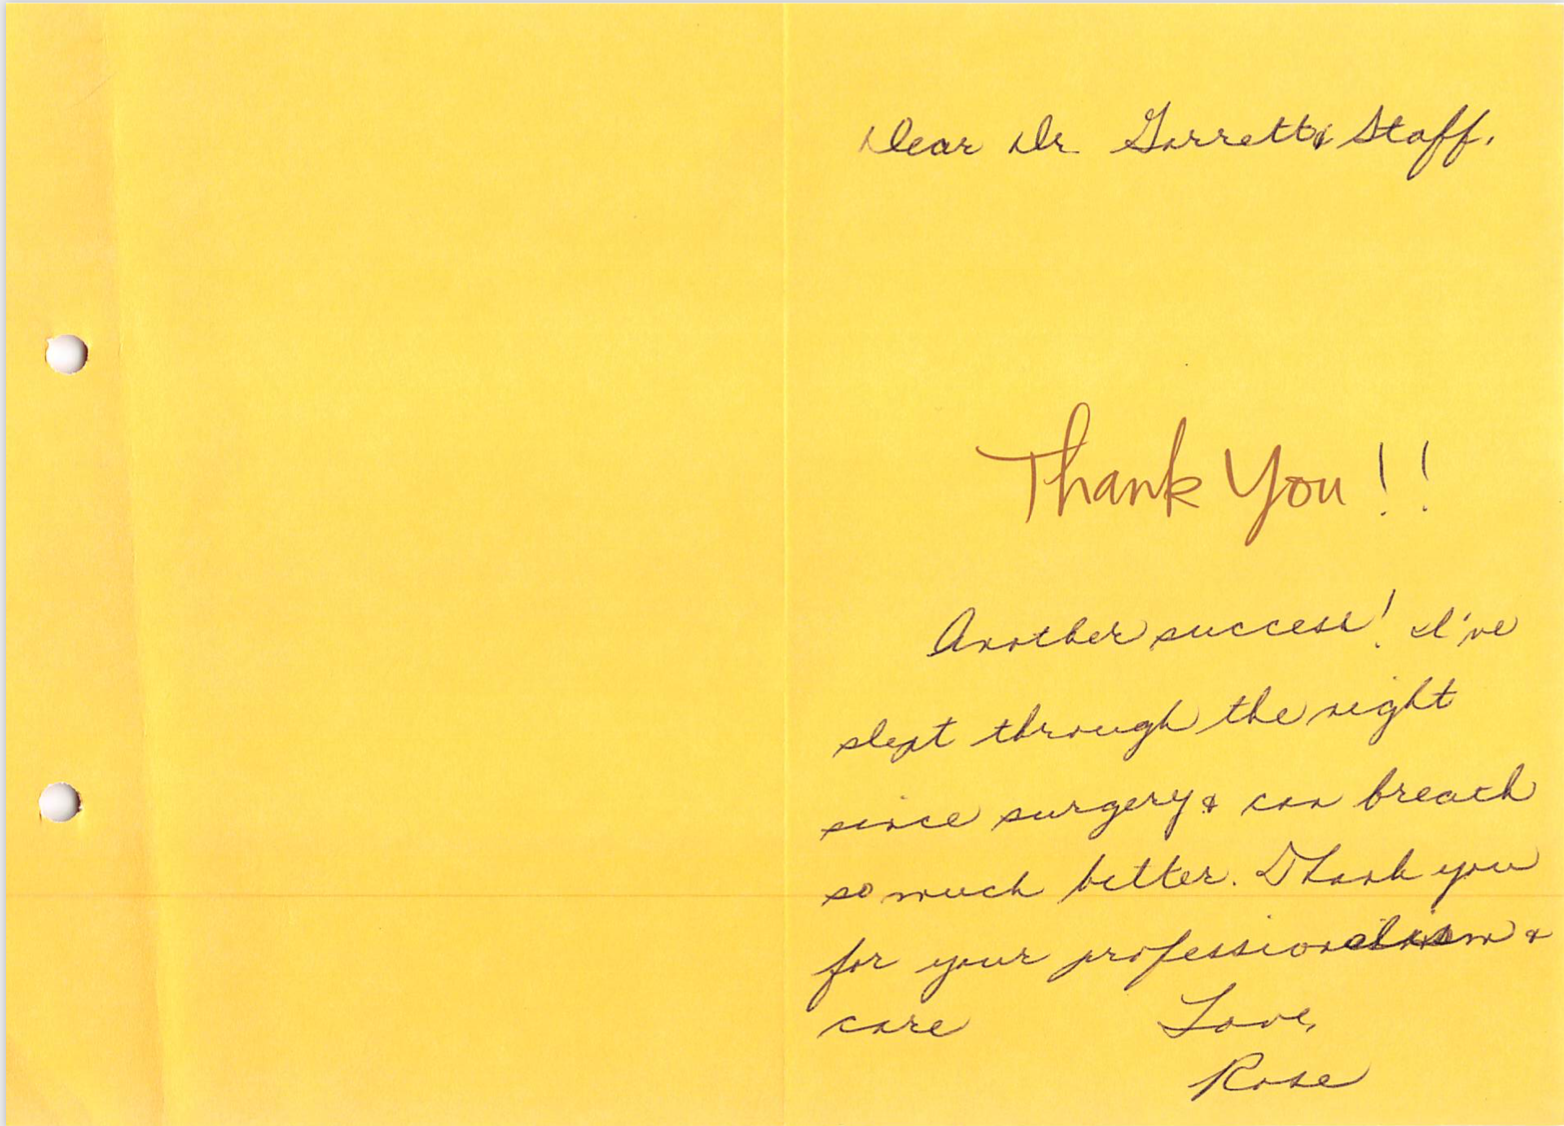 Dear Dr Garrett & Staff,
Thank You!!
Another success! I've
slept through the night
since surgery & can breath
so much better. Thank you
for your professionalism &
care
Love,
Rose